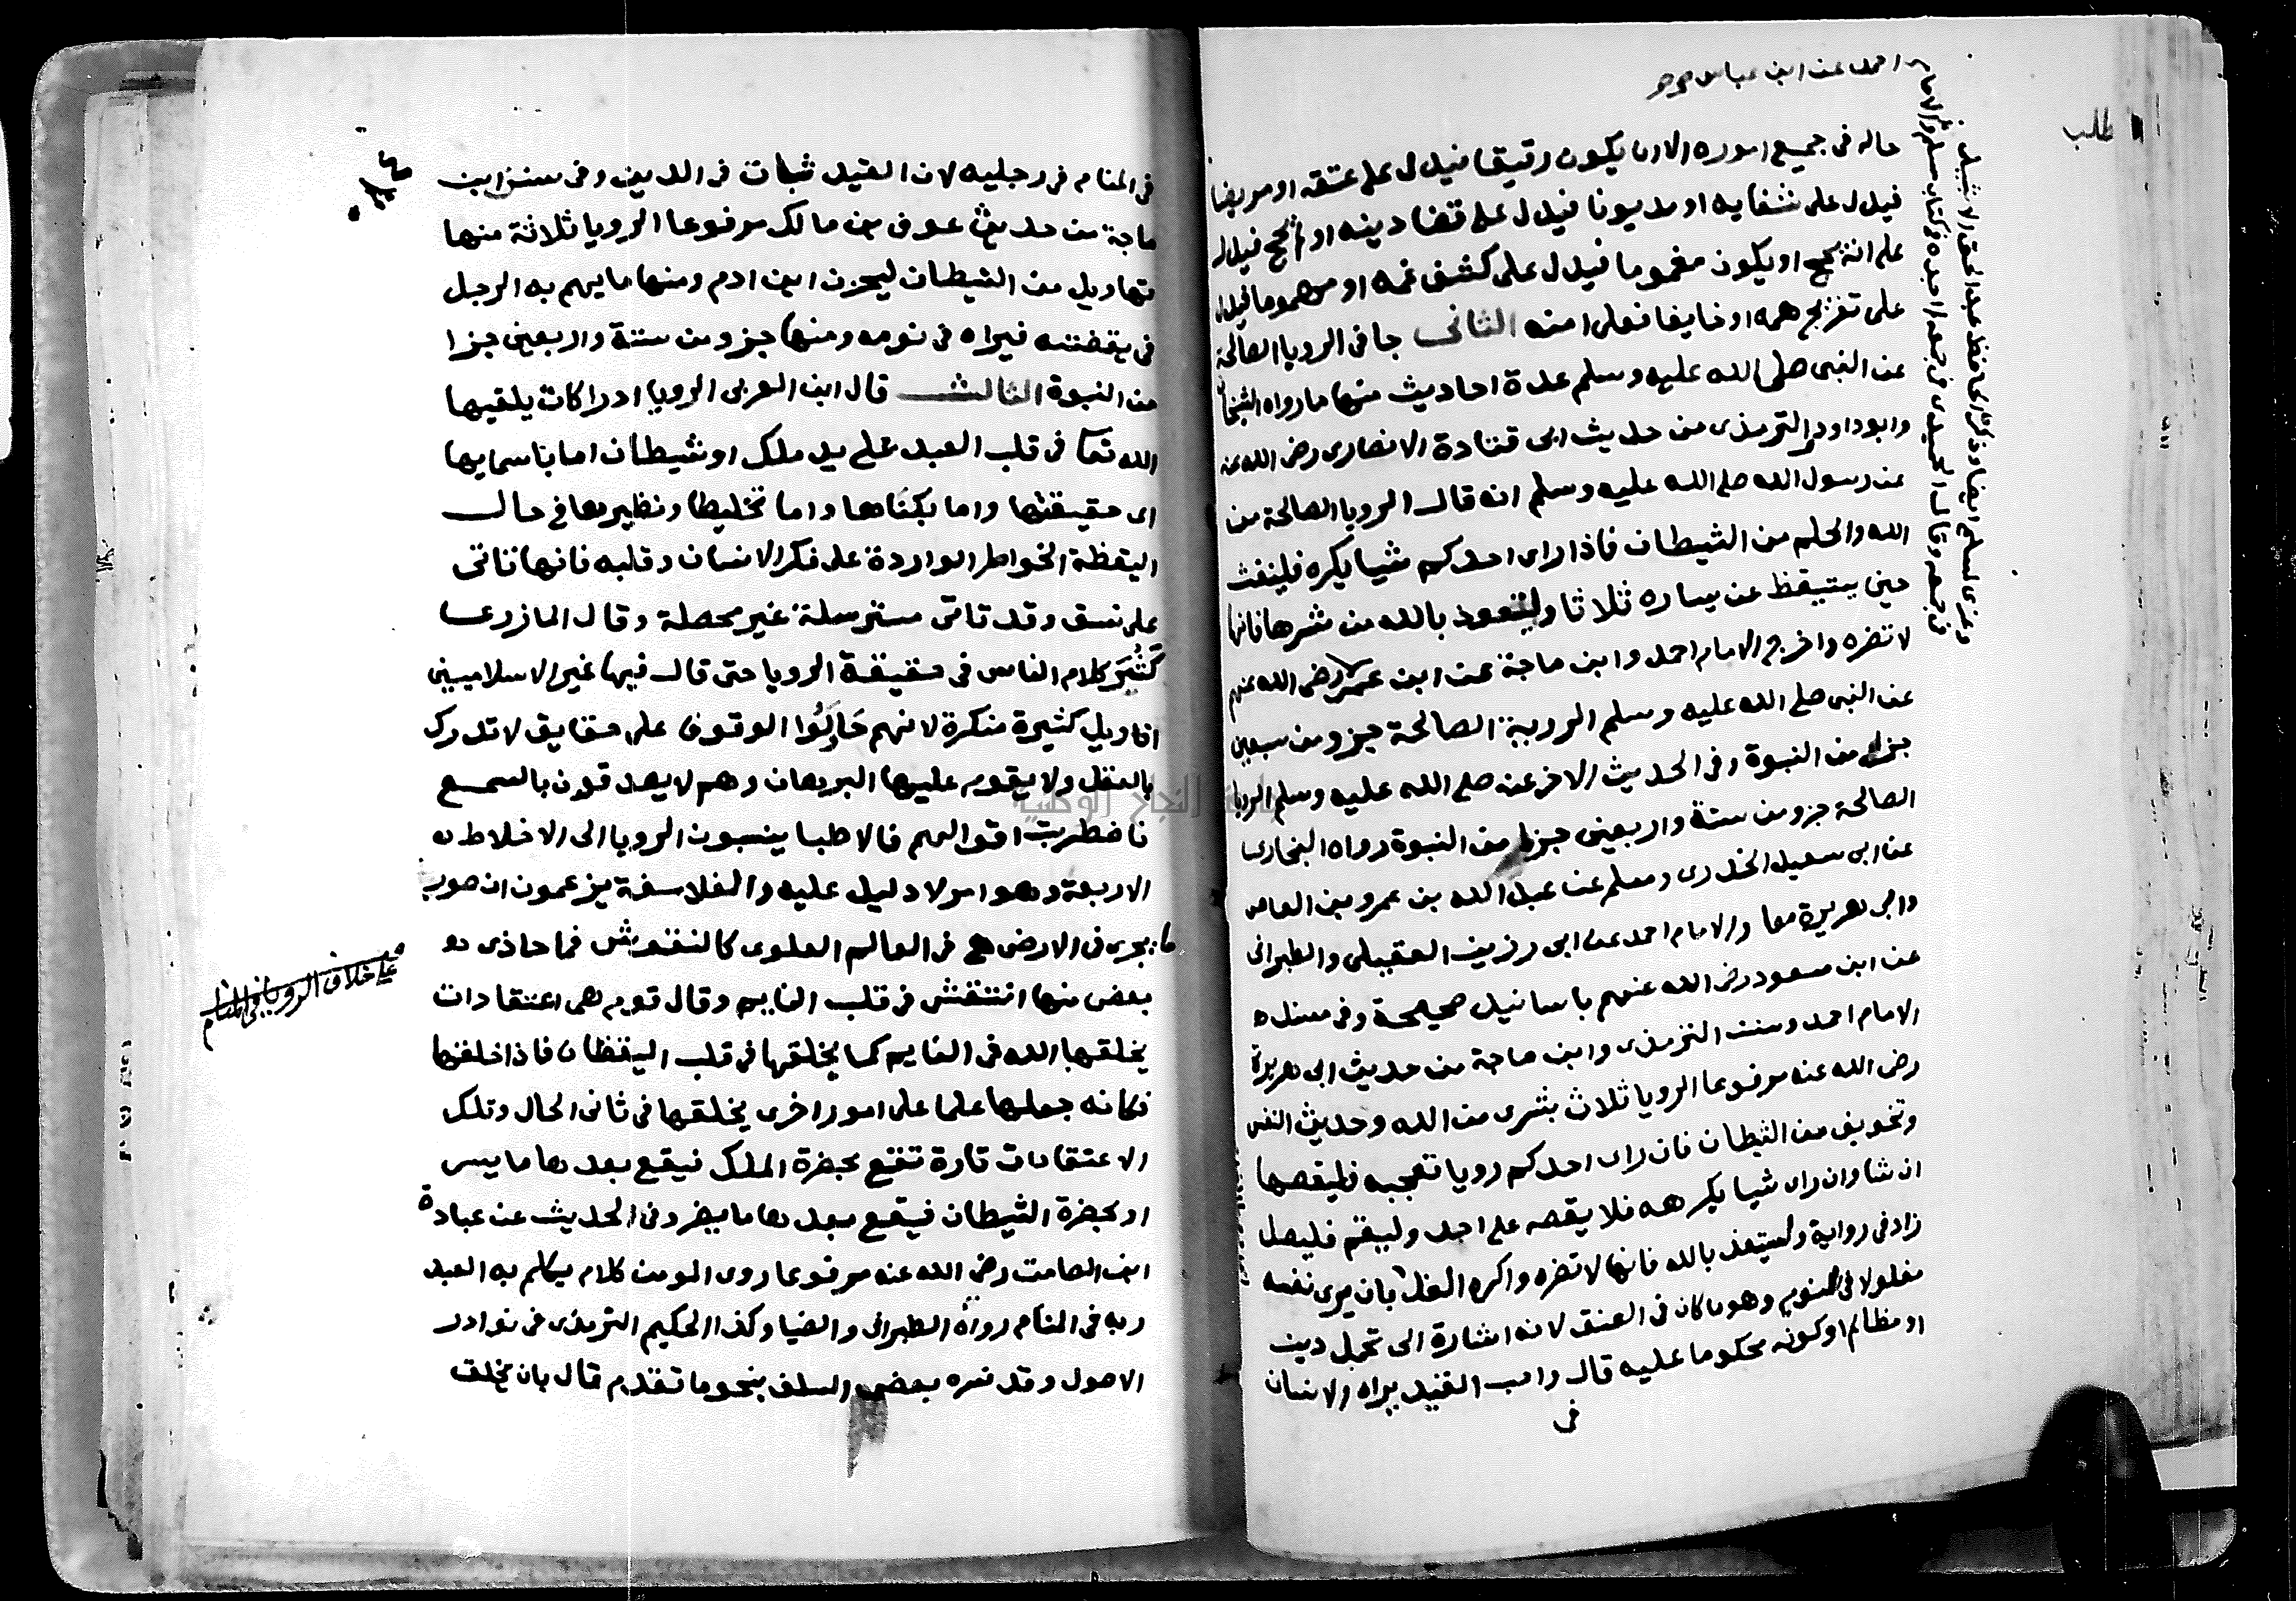 احمد عن ابن عباس
طلب
حاله فى جميع اموره الا ان يكون رقيقا فيدل على عتقه او مريضا
فيدل على شفايه او مديونا فيدل على قضا دينه او لم يحج فيدل
على انه يحج او يكون مغموما فيدل على كشف غمه او مهموما فيدل
على تفريج همه او خايفا فعلى امنه الثانى جا فى الرويا الصالحة
عن النبى صلى الله عليه وسلم عدة احاديث منها ما رواه الشيخان
وابو داود والترمذى من حديث ابى قتادة الانصارى رضى الله عنه
عن رسول الله صلى الله عليه وسلم انه قال الرويا الصالحة من
الله والحلم من الشيطان فاذا راى احدكم شيا يكره فلينفث
حين يستيقظ عن يساره ثلاثا وليتعوذ بالله من شرها فانها
لا تضره واخرج الامام احمد وابن ماجة عن ابن عمر رضى الله عنهم
عن النبى صلى الله عليه وسلم الروية الصالحة جزو من سبعين
جزا من النبوة وفى الحديث الاخر عنه صلى الله عليه وسلم الرويا
الصالحة جزو من ستة واربعين جزا من النبوة رواه البخارى
عن ابى سعيد الخدرى ومسلم عن عبد الله بن عمرو بن العاص
وابى هريرة معا والامام احمد عن ابى رزين العقيلى والطبرانى
عن ابن مسعود رضى الله عنهم باسانيد صحيحة وفى مسند
الامام احمد وسنن الترمذى وابن ماجة من حديث ابى هريرة
رضى الله عنه مرفوعا الرويا ثلاث بشرى من الله وحديث النفس
وتخويف من الشيطان فان راى احدكم رويا تعجبه فليقصها
ان شا وان راى شيا يكرهه فلا يقصه على احد وليقم فليصل
زاد فى رواية وليستعذ بالله فانها لا تضره واكره الغل بان يرى نفسه
مغلولا فى النوم وهو ما كان فى العنق لانه اشارة الى تحمل دين
او مظالم او كونه محكوما عليه قال واحب القيد يراه الانسان
فى
فى المنام فى رجليه لان القيد ثبات فى الدين وفى سنن ابن
ماجة من حديث عوف بن مالك مرفوعا الرويا ثلاثة منها
تهاويل من الشيطان ليحزن ابن ادم ومنها ما يهم به الرجل
فى يقضته فيراه فى نومه ومنها جزو من ستة واربعين جزا
من النبوة الثالث قال ابن العربى الرويا ادراكات يلقيها
الله تعا فى قلب العبد على يد ملك او شيطان اما باسمايها
اى حقيقتها واما بكناها واما تخليطا ونظيرها فى حال
اليقظة الخواطر الواردة على فكر الانسان وقلبه فانها تاتى
على نسق وقد تاتى مسترسلة غير محصلة وقال المازرى
كثر كلام الناس فى حقيقة الرويا حتى قال فيها غير الاسلاميين
اقاويل كثيرة منكرة لانهم حاولوا الوقوف على حقايق لا تدرك
بالعقل ولا يقوم عليها البرهان وهم لا يصدقون بالسمع
فاضطربت اقوالهم فالاطبا ينسبون الرويا الى الاخلاط
الاربعة وهو امر لا دليل عليه والفلاسفة يزعمون ان صور
ما يجرى فى الارض هى فى العالم العلوى كالنقوش فما حاذى
بعض منها انتقش فى قلب النايم وقال قوم هى اعتقادات
يخلقها الله فى النايم كما يخلقها فى قلب اليقظان فاذا خلقها
فكانه جعلها علما على امور اخرى يخلقها فى ثانى الحال وتلك
الاعتقادات تارة تقع بحضرة الملك فيقع بعدها ما يسر
او بحضرة الشيطان فيقع بعدها ما يضر وفى الحديث عن عبادة
ابن الصامت رضى الله عنه مرفوعا روى المومن كلام يكلم به العبد
ربه فى المنام رواه الطبرانى والضيا وكذا الحكيم الترمذى فى نوادر
الاصول وقد فسره بعض السلف بنحو ما تقدم قال بان يخلق